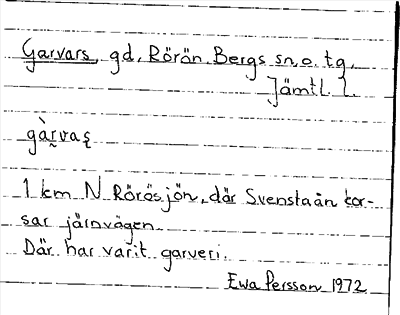 Garvars, gd, Rörön Bergs sn. o. tg,
Jämtl. l.
gàrvas̨
1 km N Rörösjön, där Svenstaån kor-
sar järnvägen.
Där har varit garveri.
Ewa Persson 1972